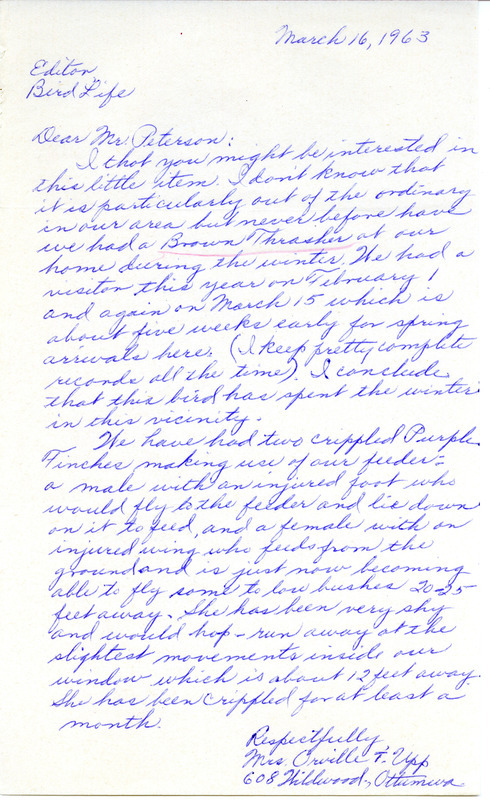 March 16, 1963
Editor
Bird Life
Dear Mr. Peterson:
I thot you might be interested in
this little item. I don't know that
it is particularly out of the ordinary
in our area but never before have
we had a Brown Thrasher at our
home during the winter. We had a
visitor this year on February 1
and again on March 15 which is
about five weeks early for spring
arrivals here. (I keep pretty complete
records all the time). I conclude
that this bird has spent the winter
in this vicinity.
We have had two crippled Purple
Finches making use of our feeder-
a male with an injured foot who
would fly to the feeder and lie down
on it to feed, and a female with an
injured wing who feeds from the
ground and is just now becoming
able to fly some to low bushes 20-25
feet away. She has been very shy
and would hop-run away at the
slightest movements inside our
window which is about 12 feet away.
She has been crippled for at least a
month.
Respectfully
Mrs. Orville F. Upp
608 Wildwood, Ottumwa